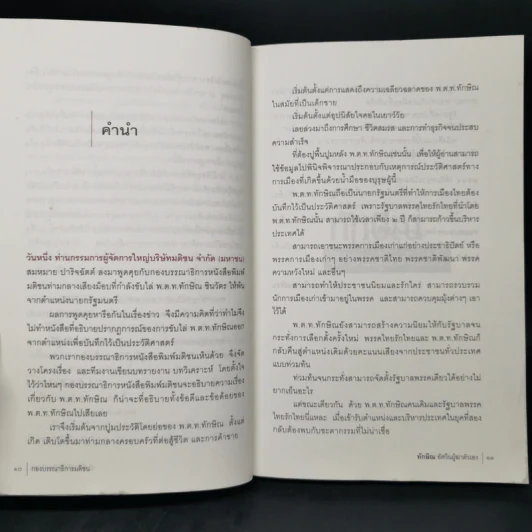 คำนำ
วันหนึ่ง ท่านกรรมการผู้จัดการใหญ่บริษัทมติชน จำกัด (มหาชน)
สมหมาย ปาริจฉัตต์ ลงมาพูดคุยกับกองบรรณาธิการหนังสือพิมพ์
มติชนท่ามกลางเสียงม็อบที่กำลังขับไล่ พ.ต.ท.ทักษิณ ชินวัตร ให้พ้น
จากตำแหน่งนายกรัฐมนตรี
ผลการพูดคุยหารือกันในเรื่องข่าว จึงมีความคิดที่ว่าทำไมจึง
ไม่ทำหนังสือที่อธิบายปรากฏการณ์ของการขับไล่ พ.ต.ท.ทักษิณออก
จากตำแหน่งเพื่อบันทึกไว้เป็นประวัติศาสตร์
พวกเรากองบรรณาธิการหนังสือพิมพ์มติชนเห็นด้วย จึงจัด
วางโครงเรื่อง และทีมงานเขียนบทรายงาน บทวิเคราะห์ โดยตั้งใจ
ไว้ว่าไหนๆ กองบรรณาธิการหนังสือพิมพ์มติชนจะอธิบายความเรื่อง
เกี่ยวกับ พ.ต.ท.ทักษิณ ก็น่าจะที่อธิบายทั้งข้อดีและข้อด้อยของ
พ.ต.ท.ทักษิณไปเสียเลย
เราจึงเริ่มต้นจากปูมประวัติโดยย่อของ พ.ต.ท.ทักษิณ ตั้งแต่
เกิด เติบโตขึ้นมาท่ามกลางครอบครัวที่ต่อสู้ชีวิต และการค้าขาย
๑๐ | กองบรรณาธิการมติชน
เริ่มต้นตั้งแต่การแสดงถึงความเฉลียวฉลาดของ พ.ต.ท.ทักษิณ
ในสมัยที่เป็นเด็กชาย
เริ่มต้นตั้งแต่อุปนิสัยใจคอในเยาว์วัย
เลยล่วงมาถึงการศึกษา ชีวิตสมรส และการทำธุรกิจจนประสบ
ความสำเร็จ
ที่ต้องปูพื้นปูมหลัง พ.ต.ท.ทักษิณเช่นนั้น เพื่อให้ผู้อ่านสามารถ
ใช้ข้อมูลไปพินิจพิจารณาประกอบกับเหตุการณ์ประวัติศาสตร์ทาง
การเมืองที่เกิดขึ้นด้วยน้ำมือของบุรุษผู้นี้
พ.ต.ท.ทักษิณถือเป็นนายกรัฐมนตรีที่ทำให้การเมืองไทยต้อง
บันทึกไว้เป็นประวัติศาสตร์ เพราะรัฐบาลพรรคไทยรักไทยที่นำโดย
พ.ต.ท.ทักษิณนั้น สามารถใช้เวลาเพียง ๒ ปี ก็สามารถก้าวขึ้นบริหาร
ประเทศได้
สามารถเอาชนะพรรคการเมืองเก่าแก่อย่างประชาธิปัตย์ หรือ
พรรคการเมืองเก่าๆ อย่างพรรคชาติไทย พรรคชาติพัฒนา พรรค
ความหวังใหม่ และอื่นๆ
สามารถทำให้ประชาชนนิยมและรักใคร่ สามารถรวบรวม
นักการเมืองเก่าเข้ามาอยู่ในพรรค และสามารถควบคุมมุ้งต่างๆ เอา
ไว้ได้
พ.ต.ท.ทักษิณยังสามารถสร้างความนิยมให้กับรัฐบาลจน
กระทั่งการเลือกตั้งครั้งใหม่ พรรคไทยรักไทยและ พ.ต.ท.ทักษิณก็
กลับคืนสู่ตำแหน่งเดิมด้วยคะแนนเสียงจากประชาชนทั่วประเทศ
แบบท่วมท้น
ท่วมท้นจนกระทั่งสามารถจัดตั้งรัฐบาลพรรคเดียวได้อย่างไม่
ยากเย็นอะไร
แต่ขณะเดียวกัน ด้วย พ.ต.ท.ทักษิณคนเดิมและรัฐบาลพรรค
ไทยรักไทยนี่แหละ เมื่อเข้ารับตำแหน่งและบริหารประเทศในยุคที่สอง
กลับต้องพบกับชะตากรรมที่ไม่น่าเชื่อ
ทักษิณ อัศวินผู้ฆ่าตัวเอง ๑๑